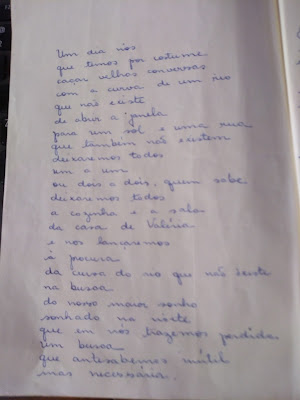 Um dia nós
que temos por costume
caçar velhas conversas
com a curva de um rio
que não existe
de abrir a janela
para um sol e uma rua
que também não existem
deixaremos todos
um a um
ou dois a dois, quem sabe
deixaremos todos
a cozinha e a sala
da casa de Valéria
e nos lançaremos
à procura
da curva do rio que não existe
na busca
do nosso maior sonho
sonhado na noite
que em nós trazemos perdidos
um busca
que antesabemos inútil
mas necessária.